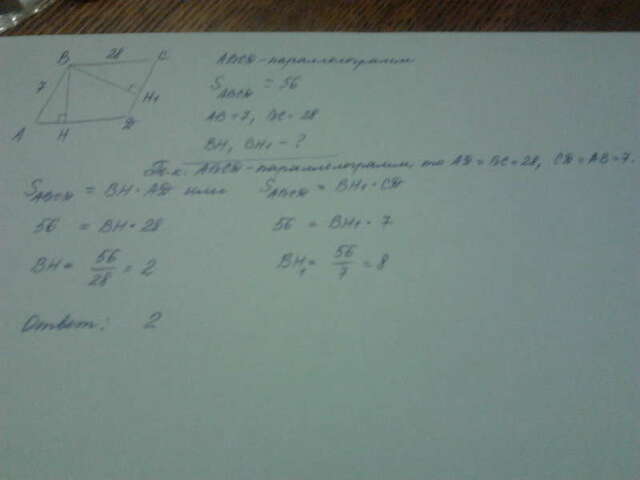 B 28 C
7
A H D H₁
ABCD - параллелограмм
S_ABCD = 56
AB = 7, BC = 28
BH, BH₁ - ?
Т.к. ABCD - параллелограмм, то AD = BC = 28, CD = AB = 7.
S_ABCD = BH · AD или S_ABCD = BH₁ · CD
56 = BH · 28 56 = BH₁ · 7
BH = 56/28 = 2 BH₁ = 56/7 = 8
Ответ: 2